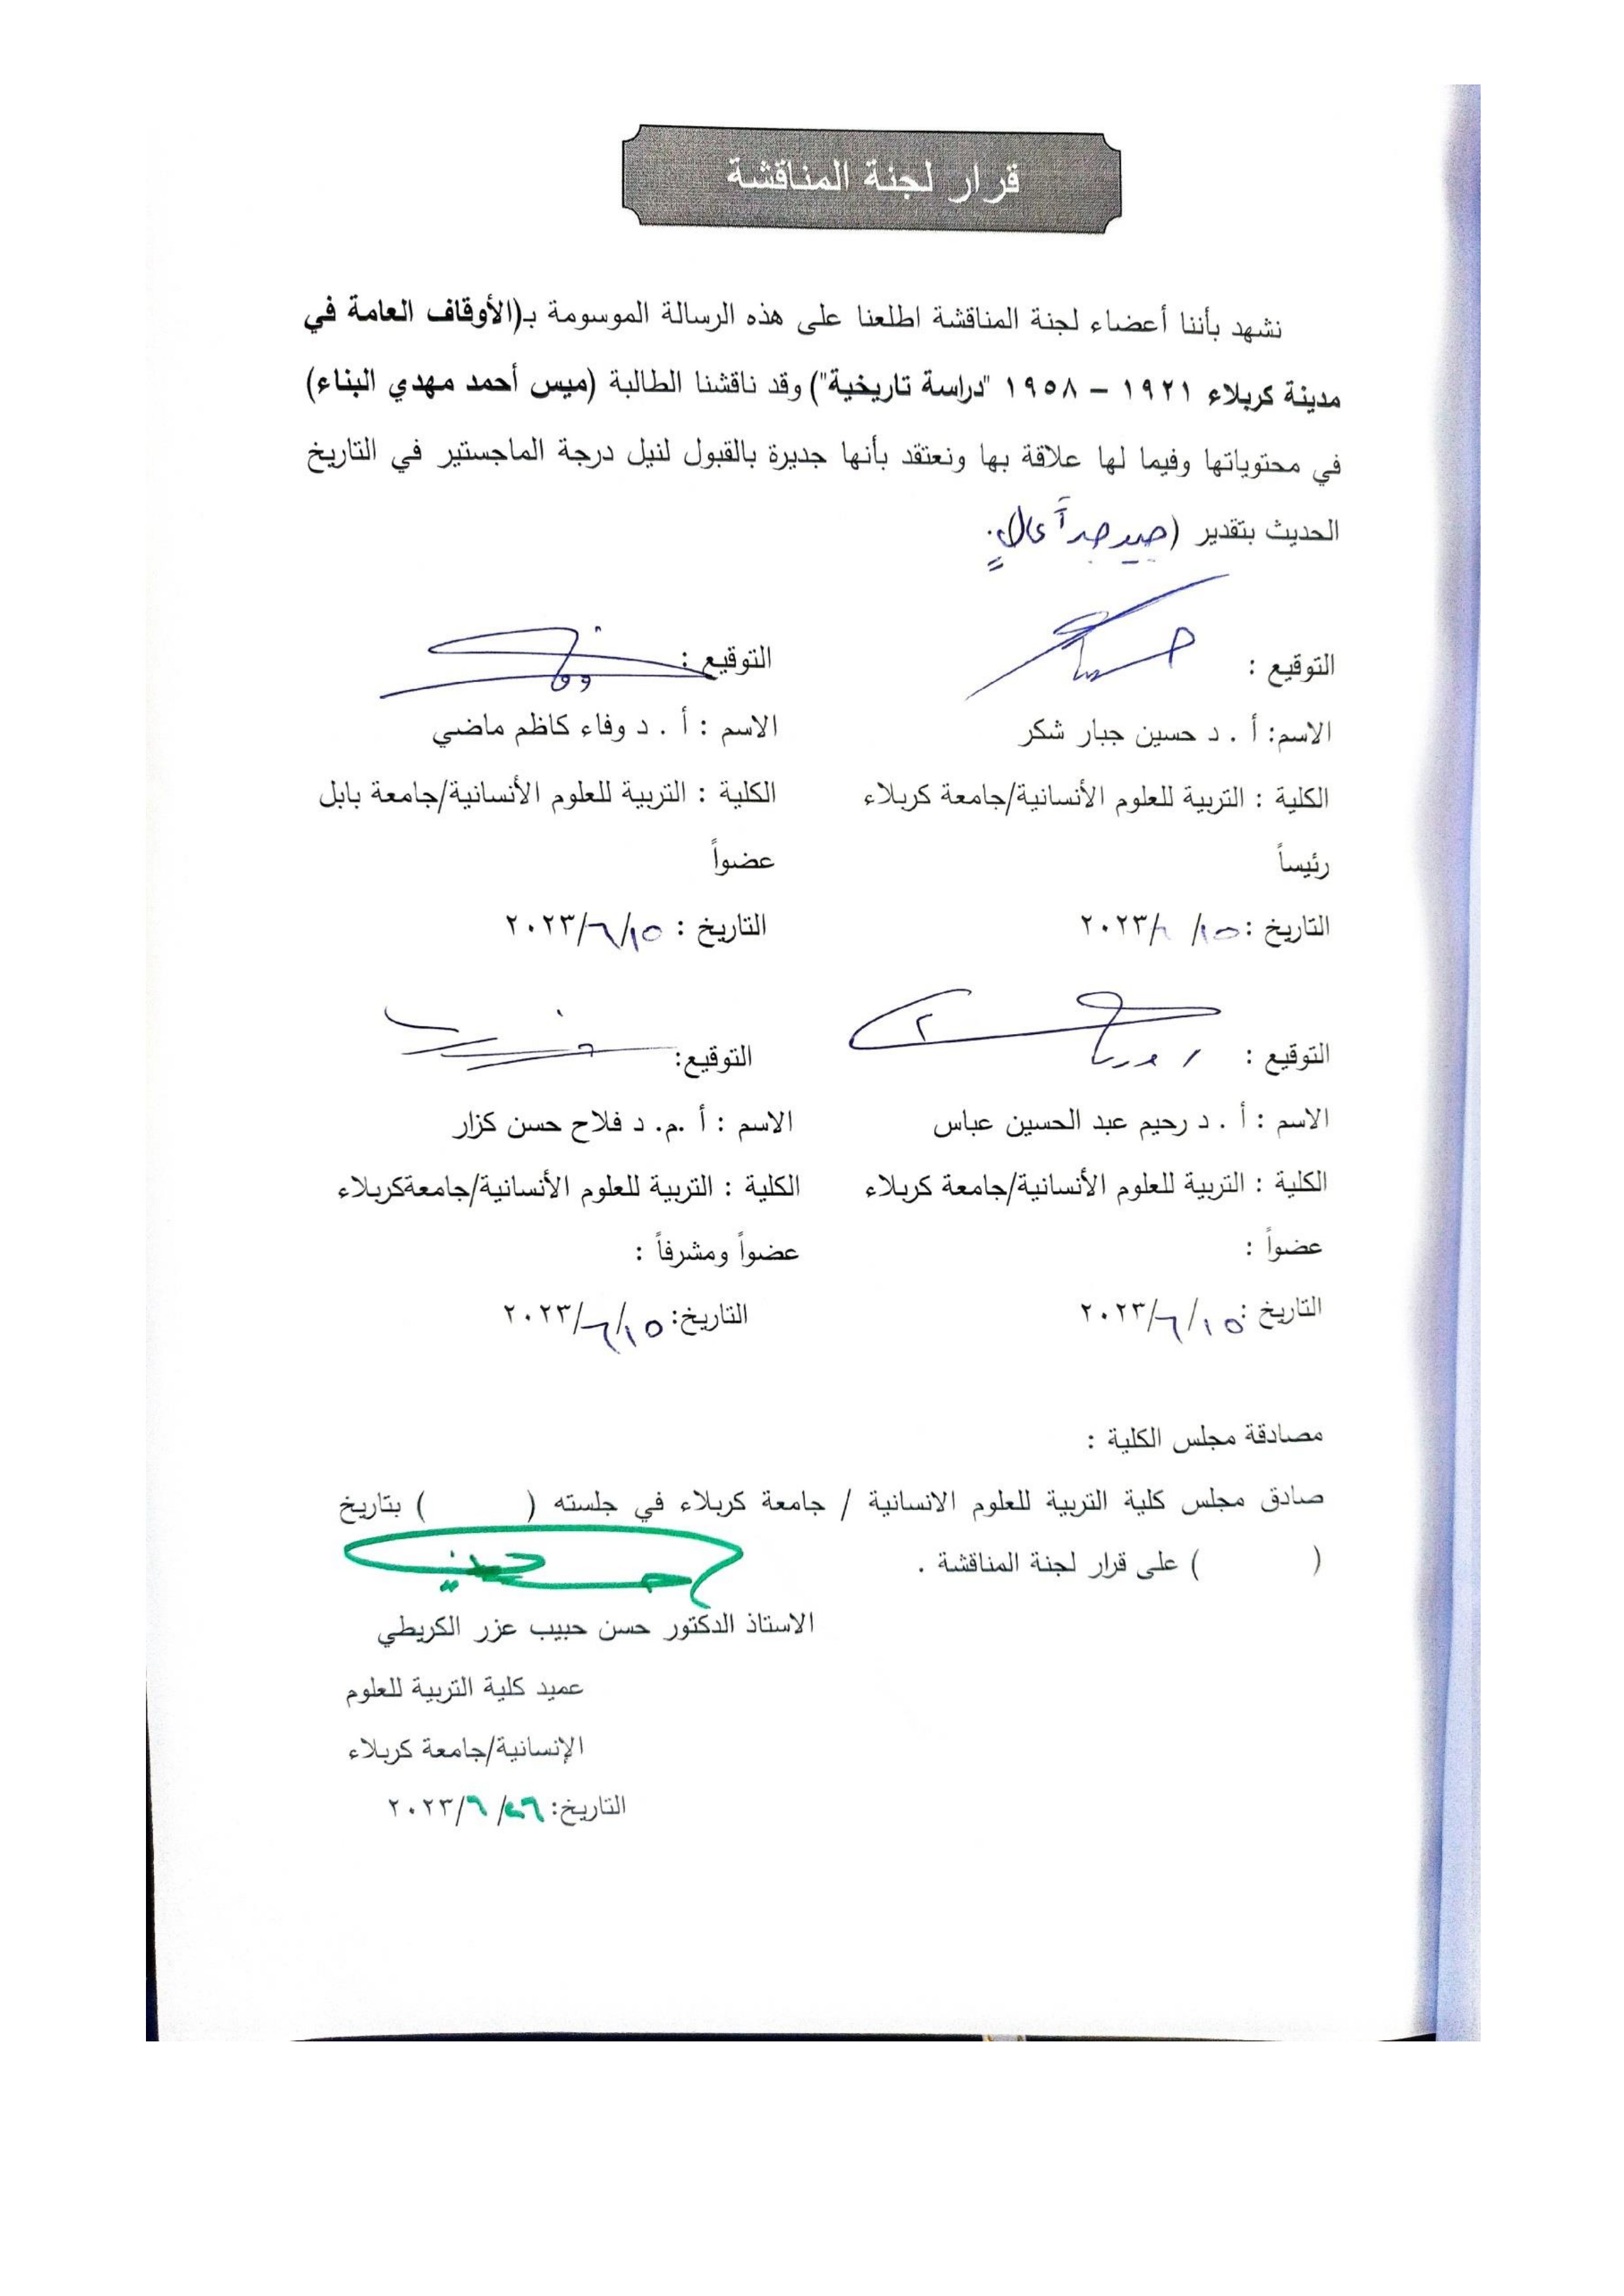 قرار لجنة المناقشة
نشهد بأننا أعضاء لجنة المناقشة اطلعنا على هذه الرسالة الموسومة بـ(الأوقاف العامة في
مدينة كربلاء ١٩٢١ – ١٩٥٨ "دراسة تاريخية") وقد ناقشنا الطالبة (ميس أحمد مهدي البناء)
في محتوياتها وفيما لها علاقة بها ونعتقد بأنها جديرة بالقبول لنيل درجة الماجستير في التاريخ
الحديث بتقدير (جيد جداً عالٍ).
التوقيع :
الاسم: أ . د حسين جبار شكر
الكلية : التربية للعلوم الأنسانية/جامعة كربلاء
رئيساً
التاريخ : ١٥/ /٢٠٢٣
التوقيع :
الاسم : أ . د وفاء كاظم ماضي
الكلية : التربية للعلوم الأنسانية/جامعة بابل
عضواً
التاريخ : ١٥/٦/٢٠٢٣
التوقيع :
الاسم : أ . د رحيم عبد الحسين عباس
الكلية : التربية للعلوم الأنسانية/جامعة كربلاء
عضواً :
التاريخ : ١٥/٦/٢٠٢٣
التوقيع:
الاسم : أ .م. د فلاح حسن كزار
الكلية : التربية للعلوم الأنسانية/جامعةكربلاء
عضواً ومشرفاً :
التاريخ: ١٥/٦/٢٠٢٣
مصادقة مجلس الكلية :
صادق مجلس كلية التربية للعلوم الانسانية / جامعة كربلاء في جلسته ( ) بتاريخ
( ) على قرار لجنة المناقشة .
الاستاذ الدكتور حسن حبيب عزر الكريطي
عميد كلية التربية للعلوم
الإنسانية/جامعة كربلاء
التاريخ: ٢٦/٦/٢٠٢٣